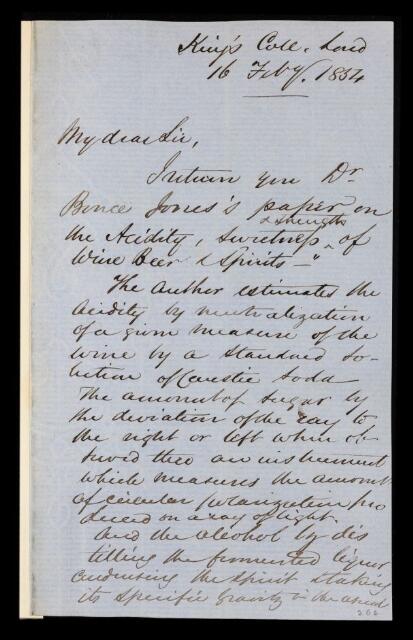 King's Coll. Lond
16 Feby. 1854
My dear Sir,
I return you Dr
Bence Jones's paper on
& strength
the Acidity, Sweetness of
Wine Beer & Spirits - "
The author estimates the
Acidity by neutralization
of a given measure of the
wine by a standard so-
lution of Caustic Soda
The amount of Sugar by
the deviation of the ray to
the right or left when ob-
served thro an instrument
which measures the amount
of circular polarization pro
duced on a ray of light.
And the alcohol by dis
tilling the fermented liquor
condensing the spirit & taking
its specific gravity in the usual